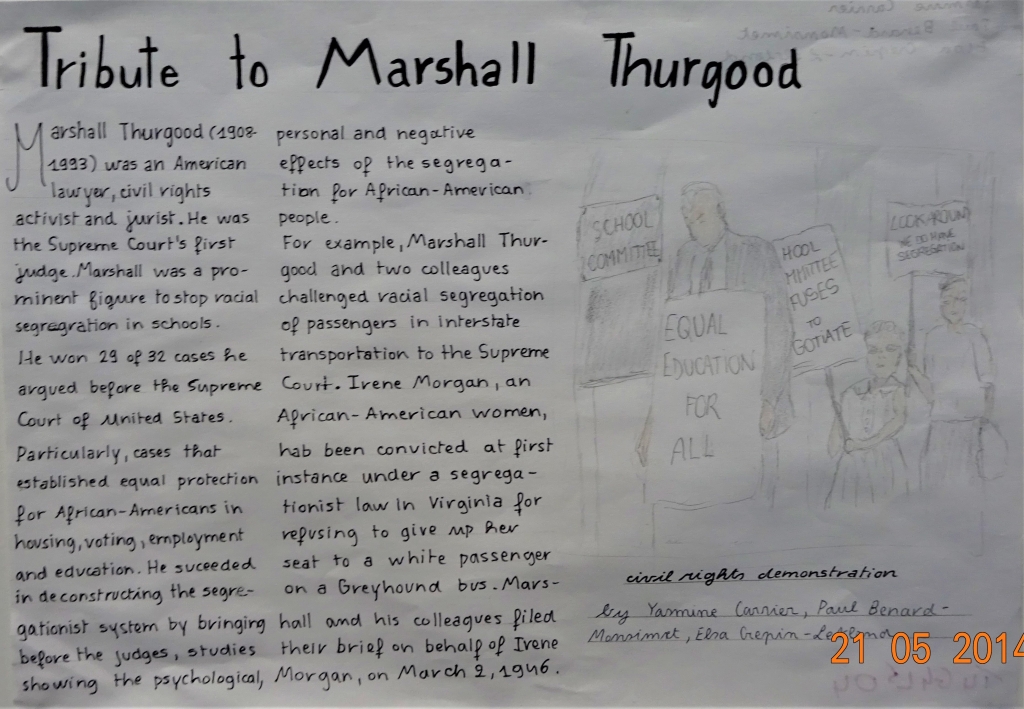 Tribute to Marshall Thurgood
Marshall Thurgood (1908-
1993) was an American
lawyer, civil rights
activist and jurist. He was
the Supreme Court's first
judge. Marshall was a pro-
minent figure to stop racial
segregration in schools.
He won 29 of 32 cases he
argued before the Supreme
Court of United States.
Particularly, cases that
established equal protection
for African-Americans in
housing, voting, employment
and education. He suceeded
in deconstructing the segre-
gationist system by bringing
before the judges, studies
showing the psychological,
personal and negative
effects of the segrega-
tion for African-American
people.
For example, Marshall Thur-
good and two colleagues
challenged racial segregation
of passengers in interstate
transportation to the Supreme
Court. Irene Morgan, an
African-American women,
hab been convicted at first
instance under a segrega-
tionist law in Virginia for
refusing to give up her
seat to a white passenger
on a Greyhound bus. Mars-
hall and his colleagues filed
their brief on behalf of Irene
Morgan, on March 2, 1946.
SCHOOL
COMMITTEE
EQUAL
EDUCATION
FOR
ALL
HOOL
MMITTEE
FUSES
TO
GOTIATE
LOOK AROUND
WE DO HAVE
SEGREGATION
civil rights demonstration
by Yasmine Carrier, Paul Benard-
Monsimet, Elsa Crepin-
21 05 2014